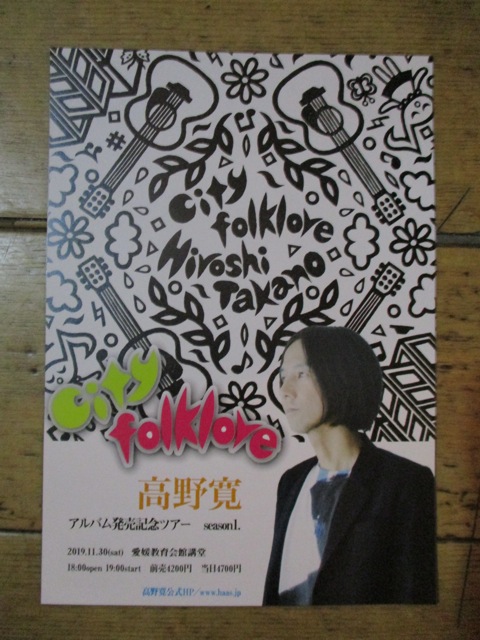 City
folklore
Hiroshi
Takano
City
folklore
高野寛
アルバム発売記念ツアー season1.
2019.11.30(sat) 愛媛教育会館講堂
18:00open 19:00start 前売4200円 当日4700円
高野寛公式HP/www.haas.jp